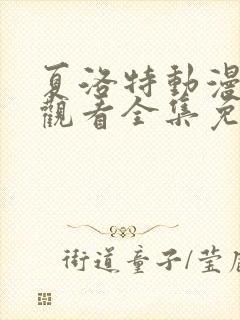 夏洛特動漫
觀看全集免
街道童子/莹